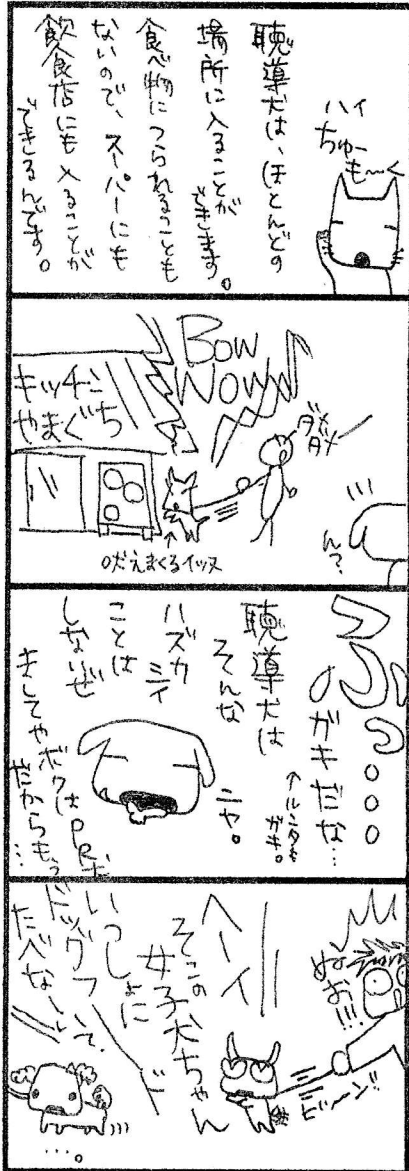 ハイ
ちゅー
も〜く
聴導犬は、ほとんどの
場所に入ることが
できます。
食べ物につられることも
ないので、スーパーにも
飲食店にも入ることが
できるんです。
BOW
WOW
ダメ
ダメ
ん?
キッチン
やまぐち
吠えまくるイッヌ
ふっ...
ガキだな…
↑ルンタもガキ。
聴導犬は
そんな
ハズカシイ
ことは
しないぜ
ニヤ。
ましてやボクはPR犬
だからもう
…
ぬお!!!
ビ〜ン!!
ヘーイ
そこの
女子犬ちゃん
いっしょに
ドッグフード
たべな〜い
…。